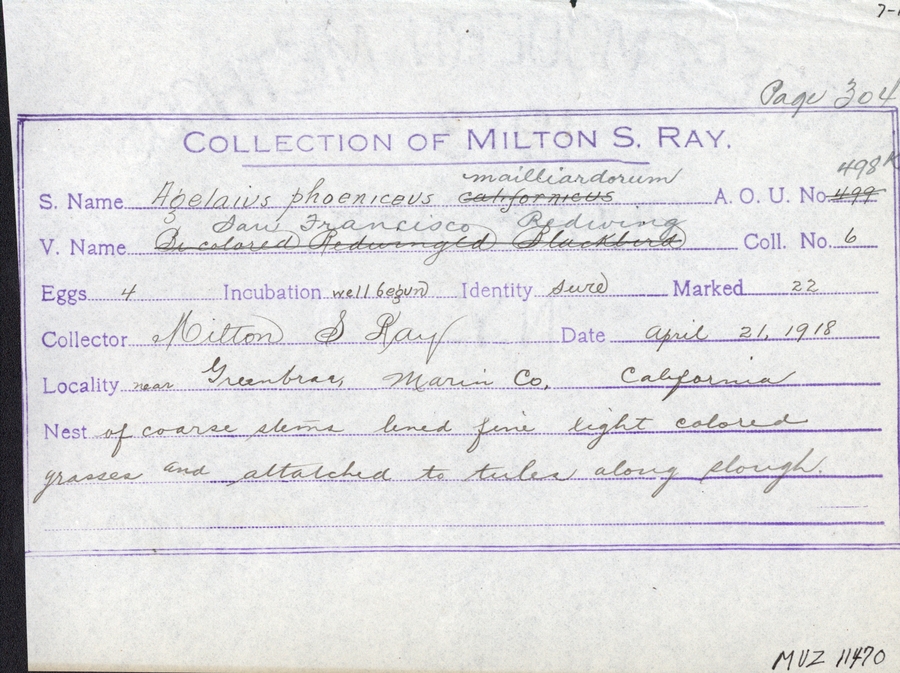 Page 304
COLLECTION OF MILTON S. RAY.
mailliardorum 498k
S. Name Agelaius phoeniceus californicus A. O. U. No 499
San Francisco Redwing
V. Name Bicolored Redwinged Blackbird Coll. No. 6
Eggs 4 Incubation well begun Identity sure Marked 22
Collector Milton S Ray Date April 21, 1918
Locality near Greenbrae, Marin Co, California
Nest of coarse stems lined fine light colored
grasses and attatched to tules along slough.
MVZ 11470